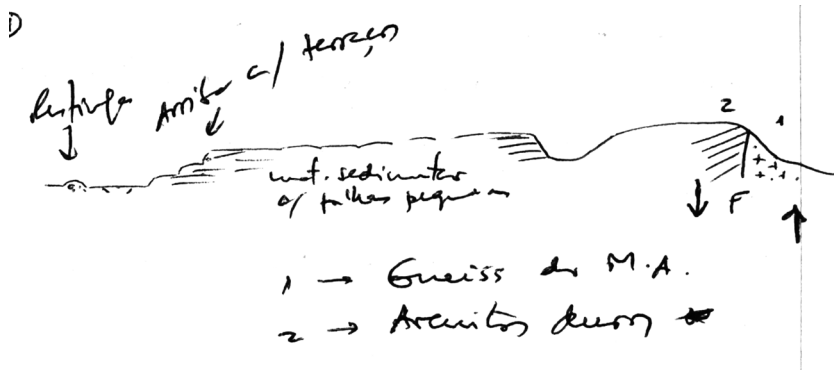 ①
Restinga
Arriba c/ terraços
2 1
mat. sedimentar
c/ falhas pequenas
F
1 → Gneiss do M.A.
2 → Arenitos duros